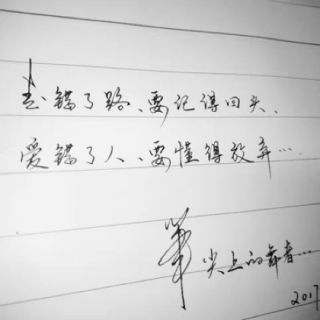 走错了路、要记得回头、
爱错了人、要懂得放弃…
笔尖上的舞者…
2017